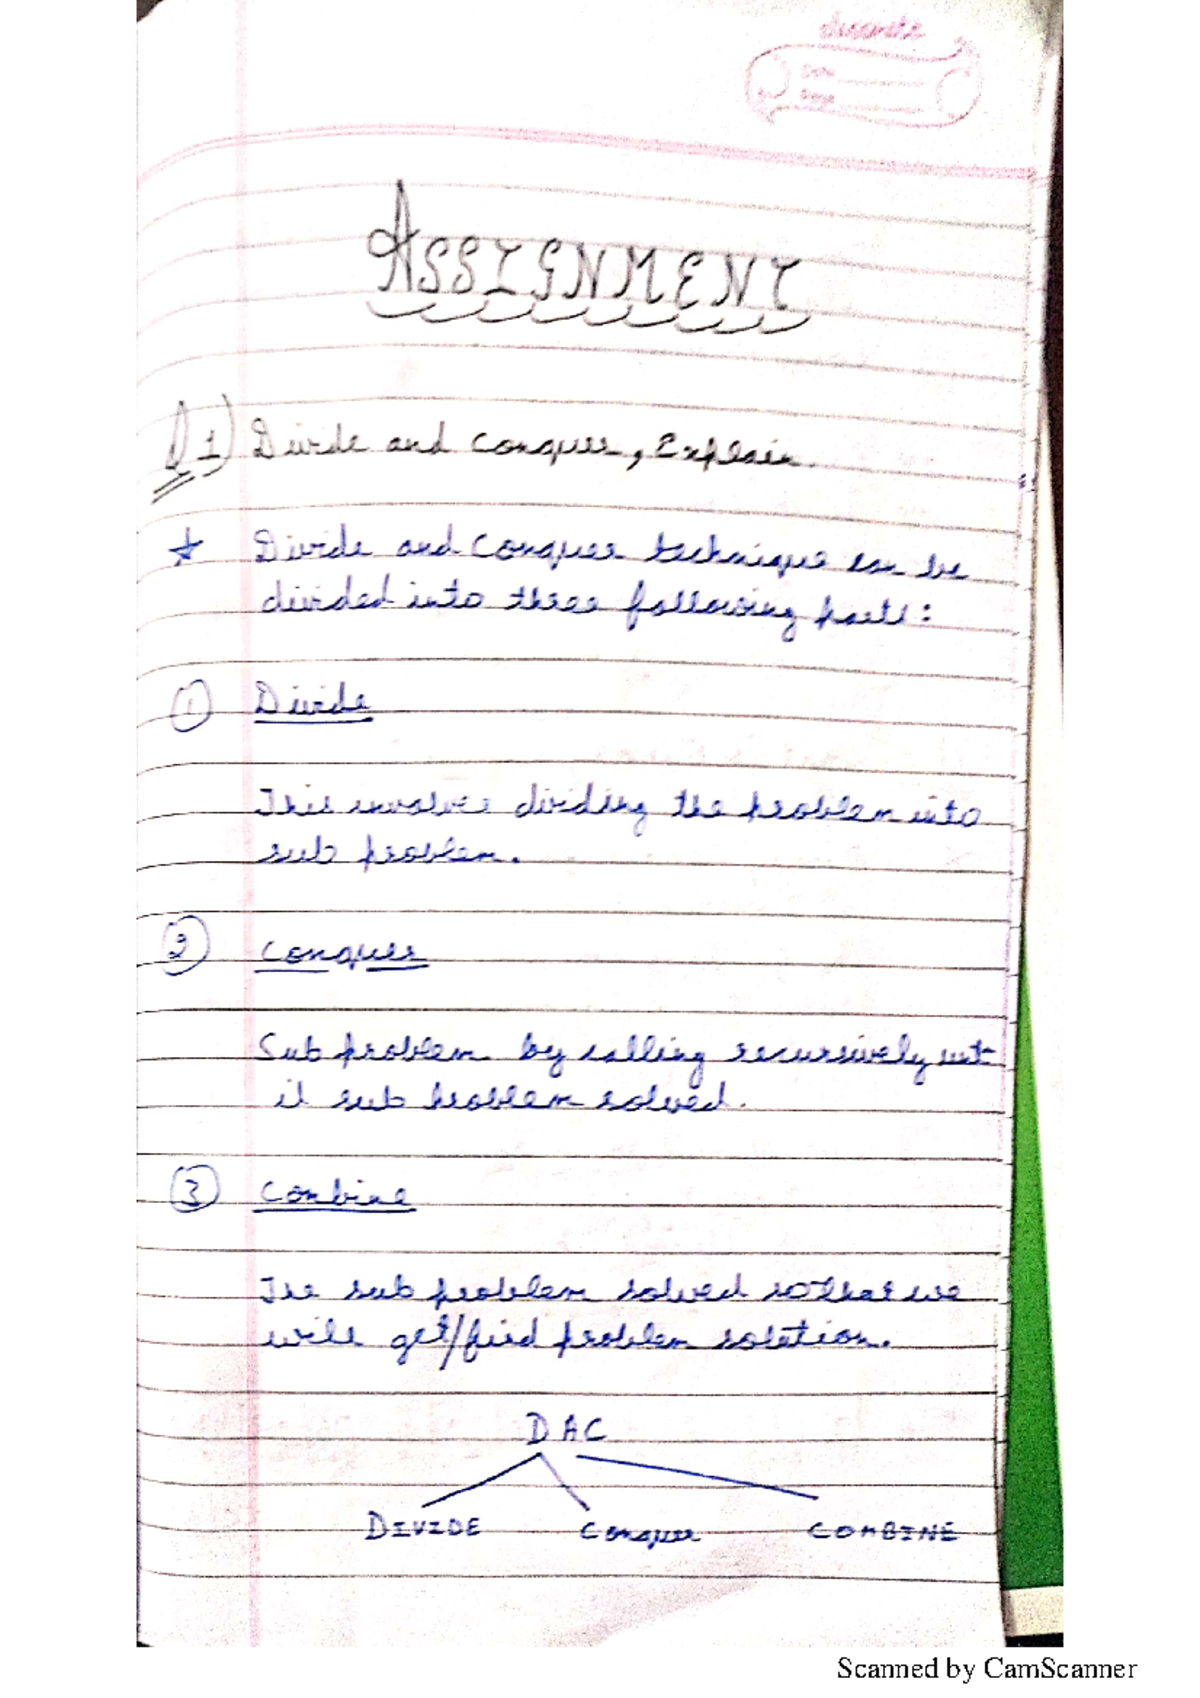 Date
Page
ASSIGNMENT
Q1) Divide and Conquer, Explain.
☆ Divide and Conquer technique can be
divided into three following parts:
① Divide
This involves dividing the problem into
sub problem.
② Conquer
Sub problem by calling recursively unt-
il sub problem solved.
③ Combine
The sub problem solved so that we
will get/find problem solution.
DAC
DIVIDE Conquer COMBINE
Scanned by CamScanner